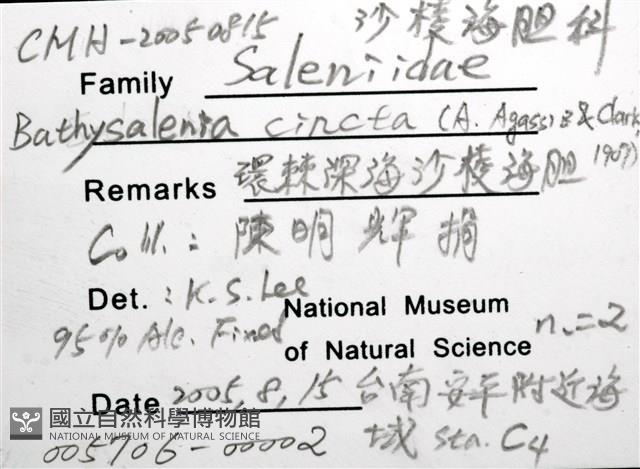 CMH-20050815 沙稜海胆科
Family Saleniidae
Bathysalenia cincta (A. Agassiz & Clark 1907)
Remarks 環棘深海沙稜海胆
Coll.: 陳明輝捐
Det.: K.S. Lee
National Museum
95% Alc. Fixed
n.=2
of Natural Science
Date 2005, 8, 15 台南安平附近海
域 sta. C4
國立自然科學博物館
NATIONAL MUSEUM OF NATURAL SCIENCE
005706-00002